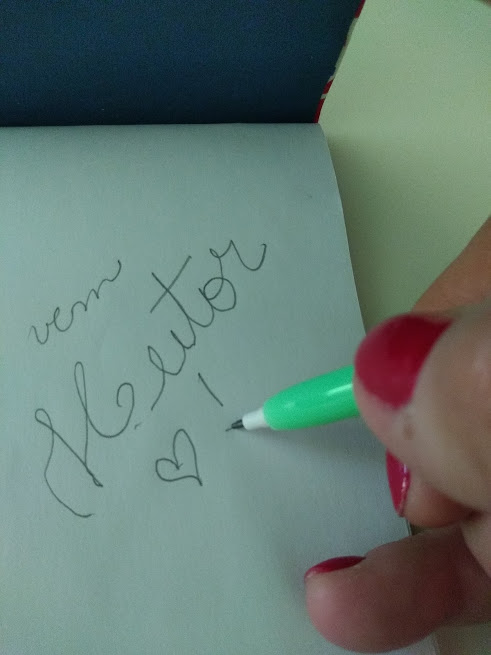 vem
Heitor
! ♡